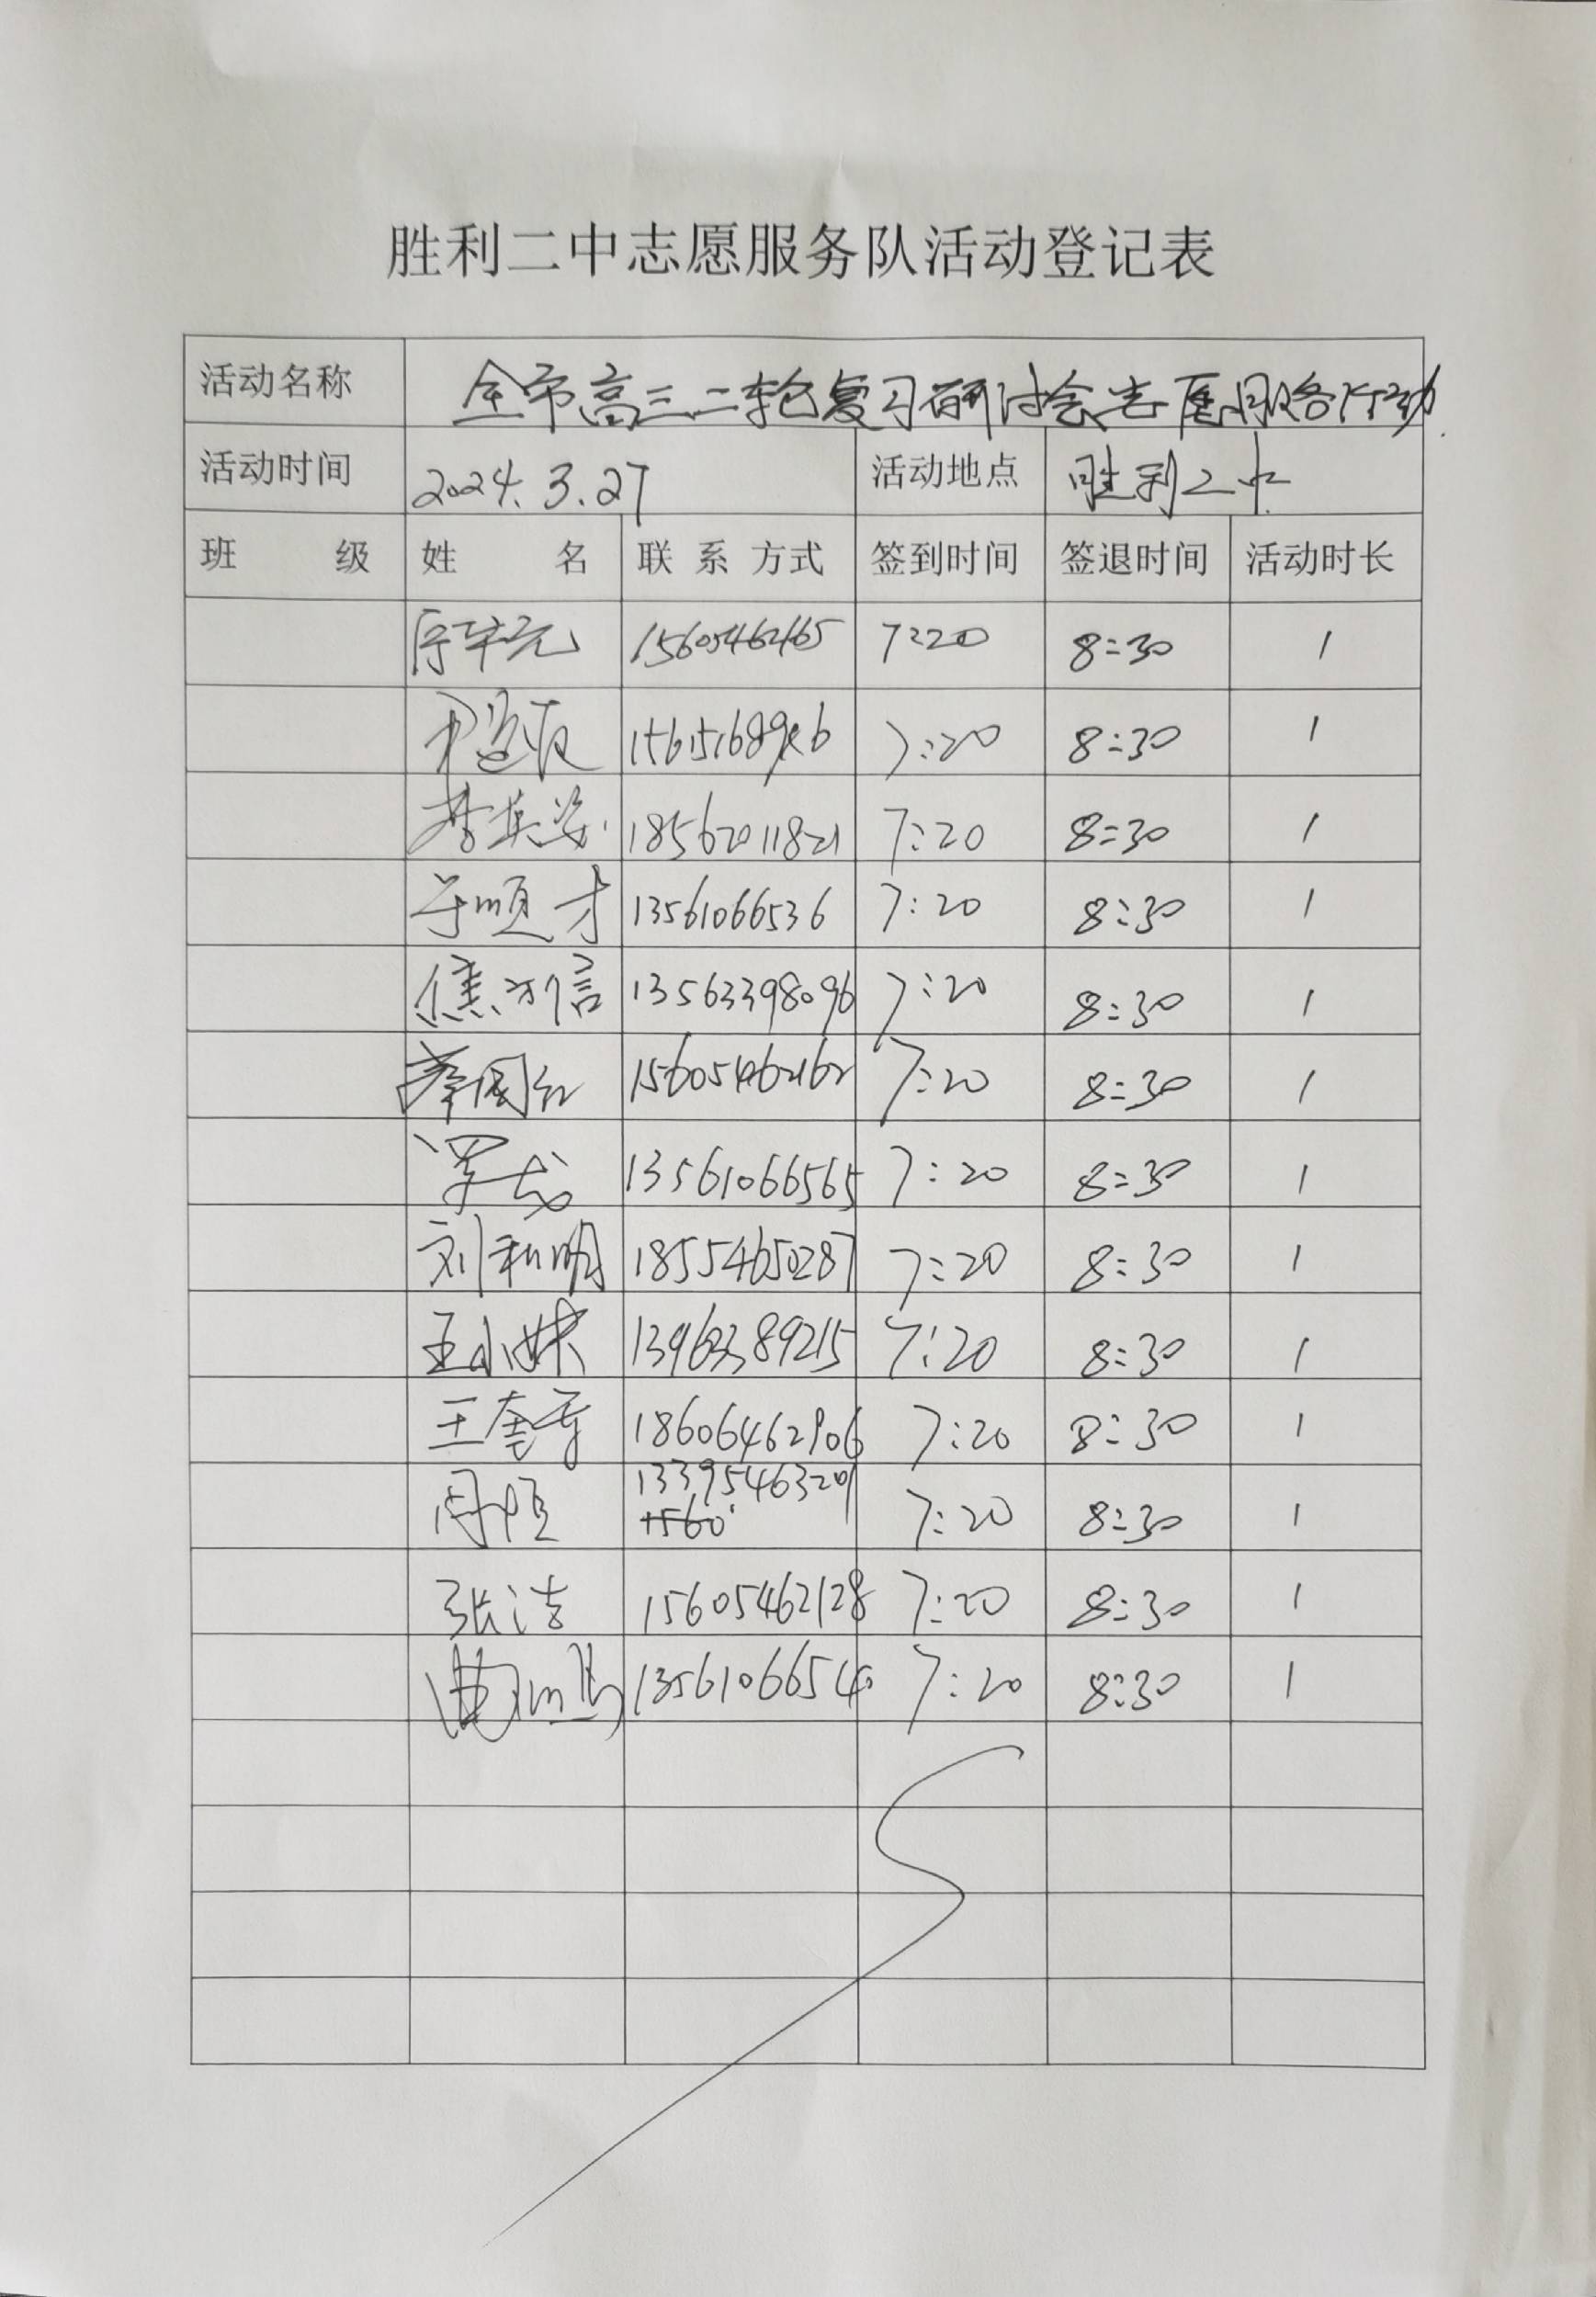 胜利二中志愿服务队活动登记表
活动名称 全市高三二轮复习研讨会志愿服务行动
活动时间 2024.3.27 活动地点 胜利二中
班 级 姓 名 联系方式 签到时间 签退时间 活动时长
15605462165 7:20 8:30 1
7:20 8:30 1
李英姿 18562011821 7:20 8:30 1
于顺才 13561066536 7:20 8:30 1
焦方信 13563398096 7:20 8:30 1
15605462162 7:20 8:30 1
13561066565 7:20 8:30 1
刘和明 18554650287 7:20 8:30 1
王小妹 13963389215 7:20 8:30 1
王奎香 18606462906 7:20 8:30 1
周恒 13395463209 7:20 8:30 1
1560
张洁 15605462128 7:20 8:30 1
13561066540 7:20 8:30 1